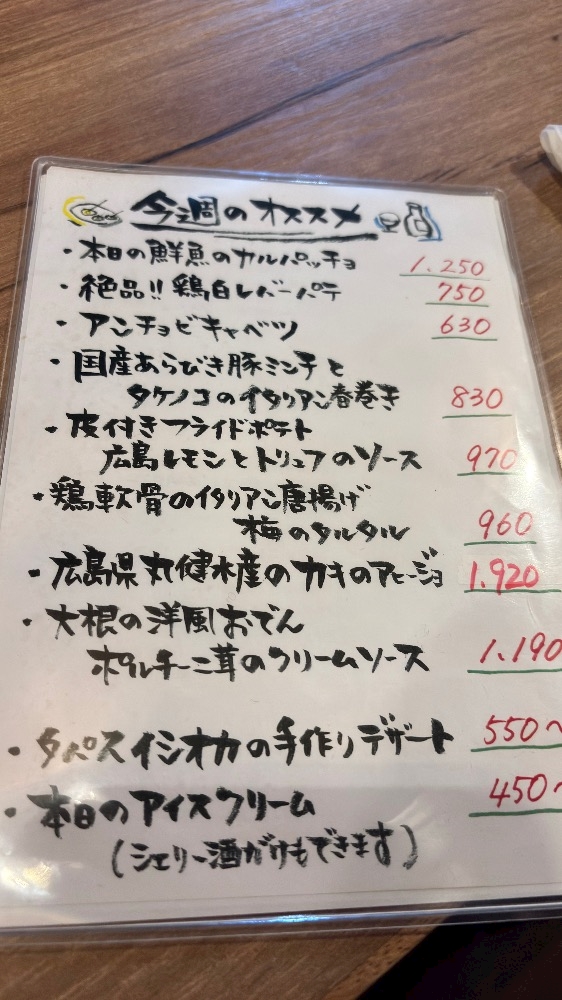 今週のオススメ
・本日の鮮魚のカルパッチョ 1.250
・絶品!!鶏白レバーパテ 750
・アンチョビキャベツ 630
・国産あらびき豚ミンチと
タケノコのイタリアン春巻き 830
・皮付きフライドポテト
広島レモンとトリュフのソース 970
・鶏軟骨のイタリアン唐揚げ
梅のタルタル 960
・広島県丸健水産のカキのアヒージョ 1.920
・大根の洋風おでん
ポルチーニ茸のクリームソース 1.190
・タパスイシオカの手作りデザート 550~
・本日のアイスクリーム 450~
(シェリー酒がけもできます)